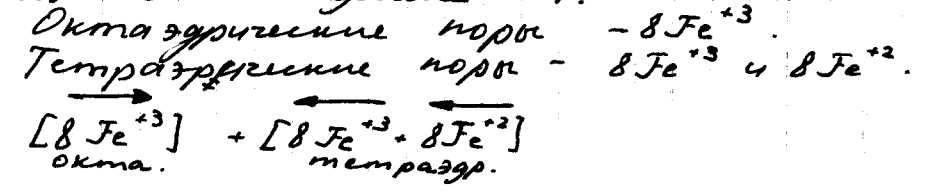 Октаэдрические поры - 8Fe⁺³.
Тетраэдрические поры - 8Fe⁺³ и 8Fe⁺².
[8Fe⁺³] + [8Fe⁺³ + 8Fe⁺²]
окта. тетраэдр.